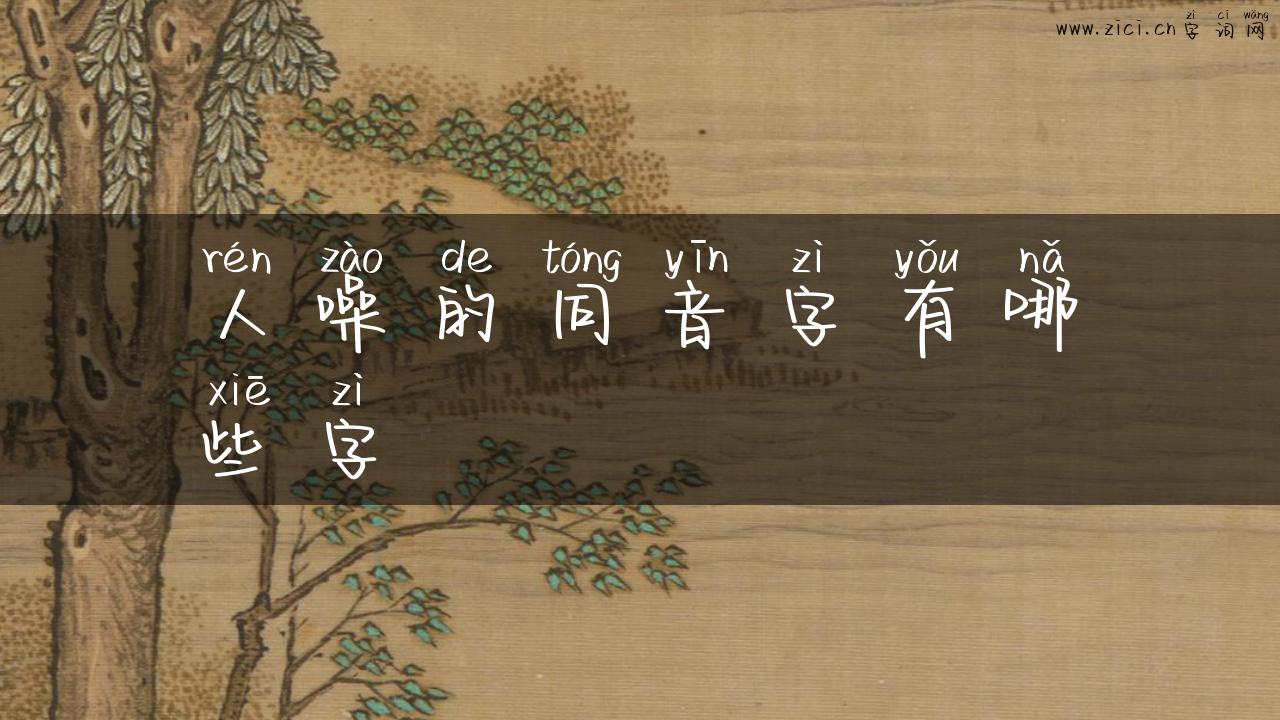 zì cí wǎng
www.zici.cn 字词网
rén zào de tóng yīn zì yǒu nǎ
人噪的同音字有哪
xiē zì
些字